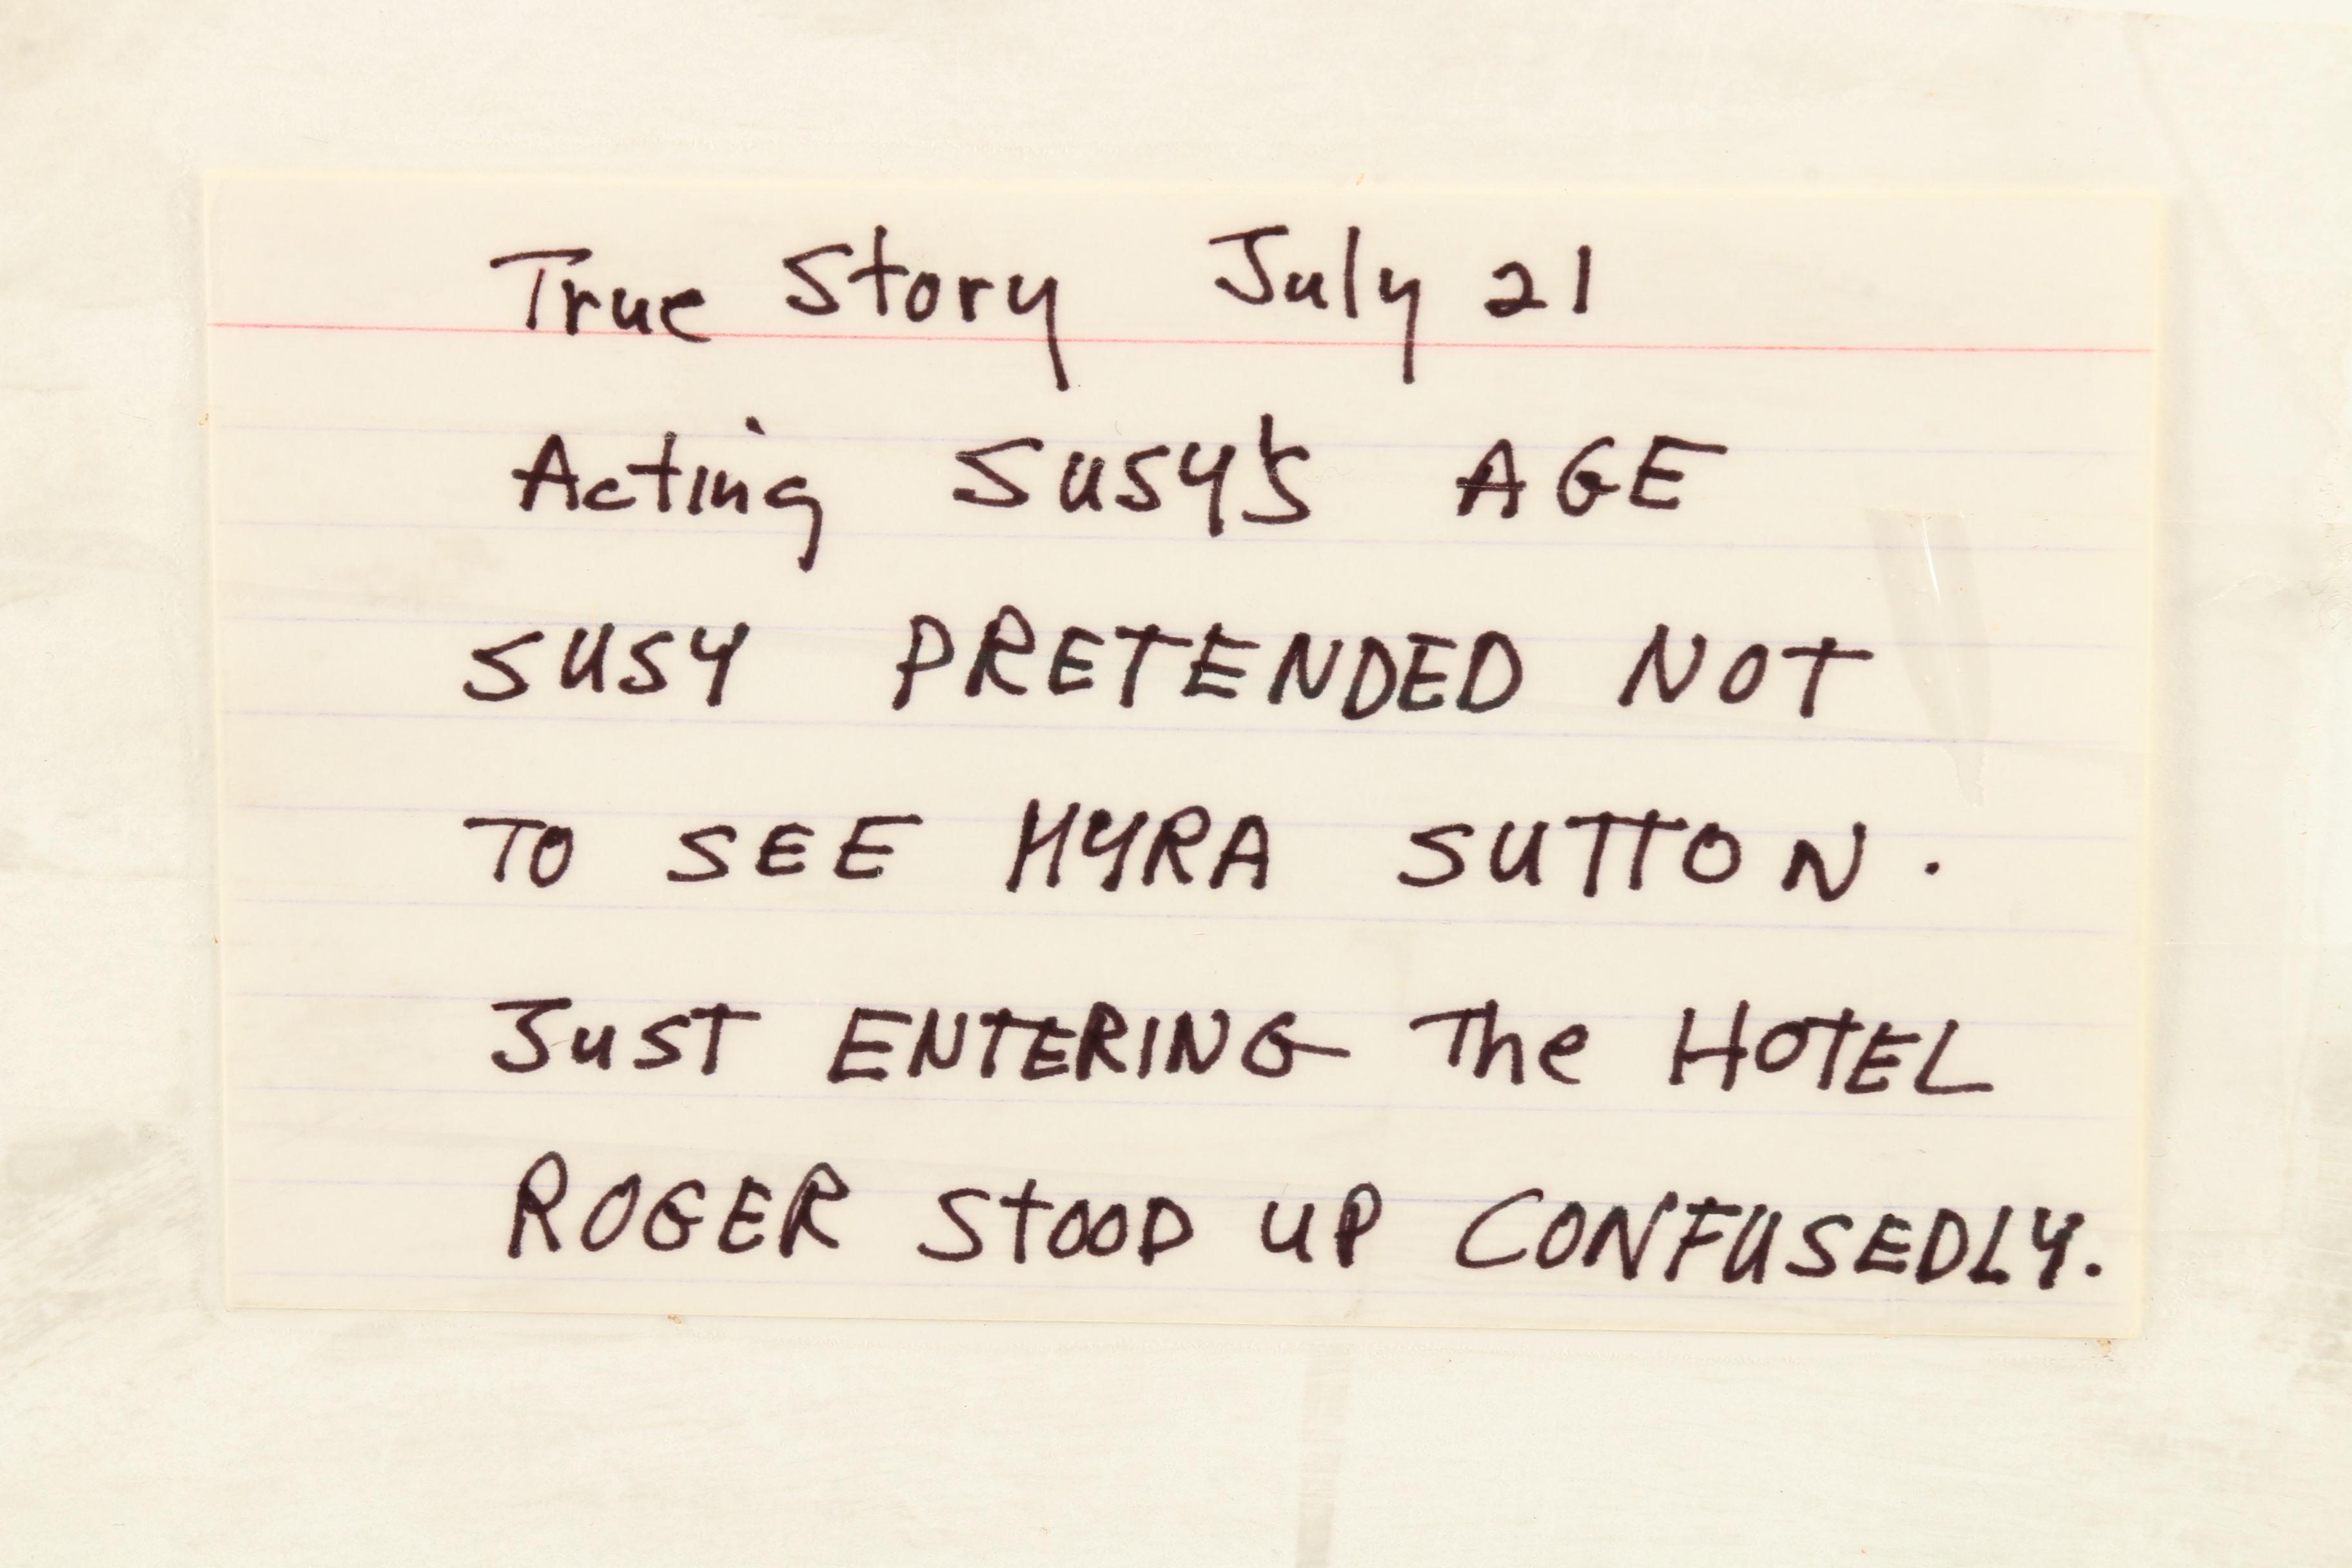 True Story July 21
Acting Susy's AGE
SUSY PRETENDED NOT
TO SEE HYRA SUTTON.
JUST ENTERING The HOTEL
ROGER STOOD UP CONFUSEDLY.